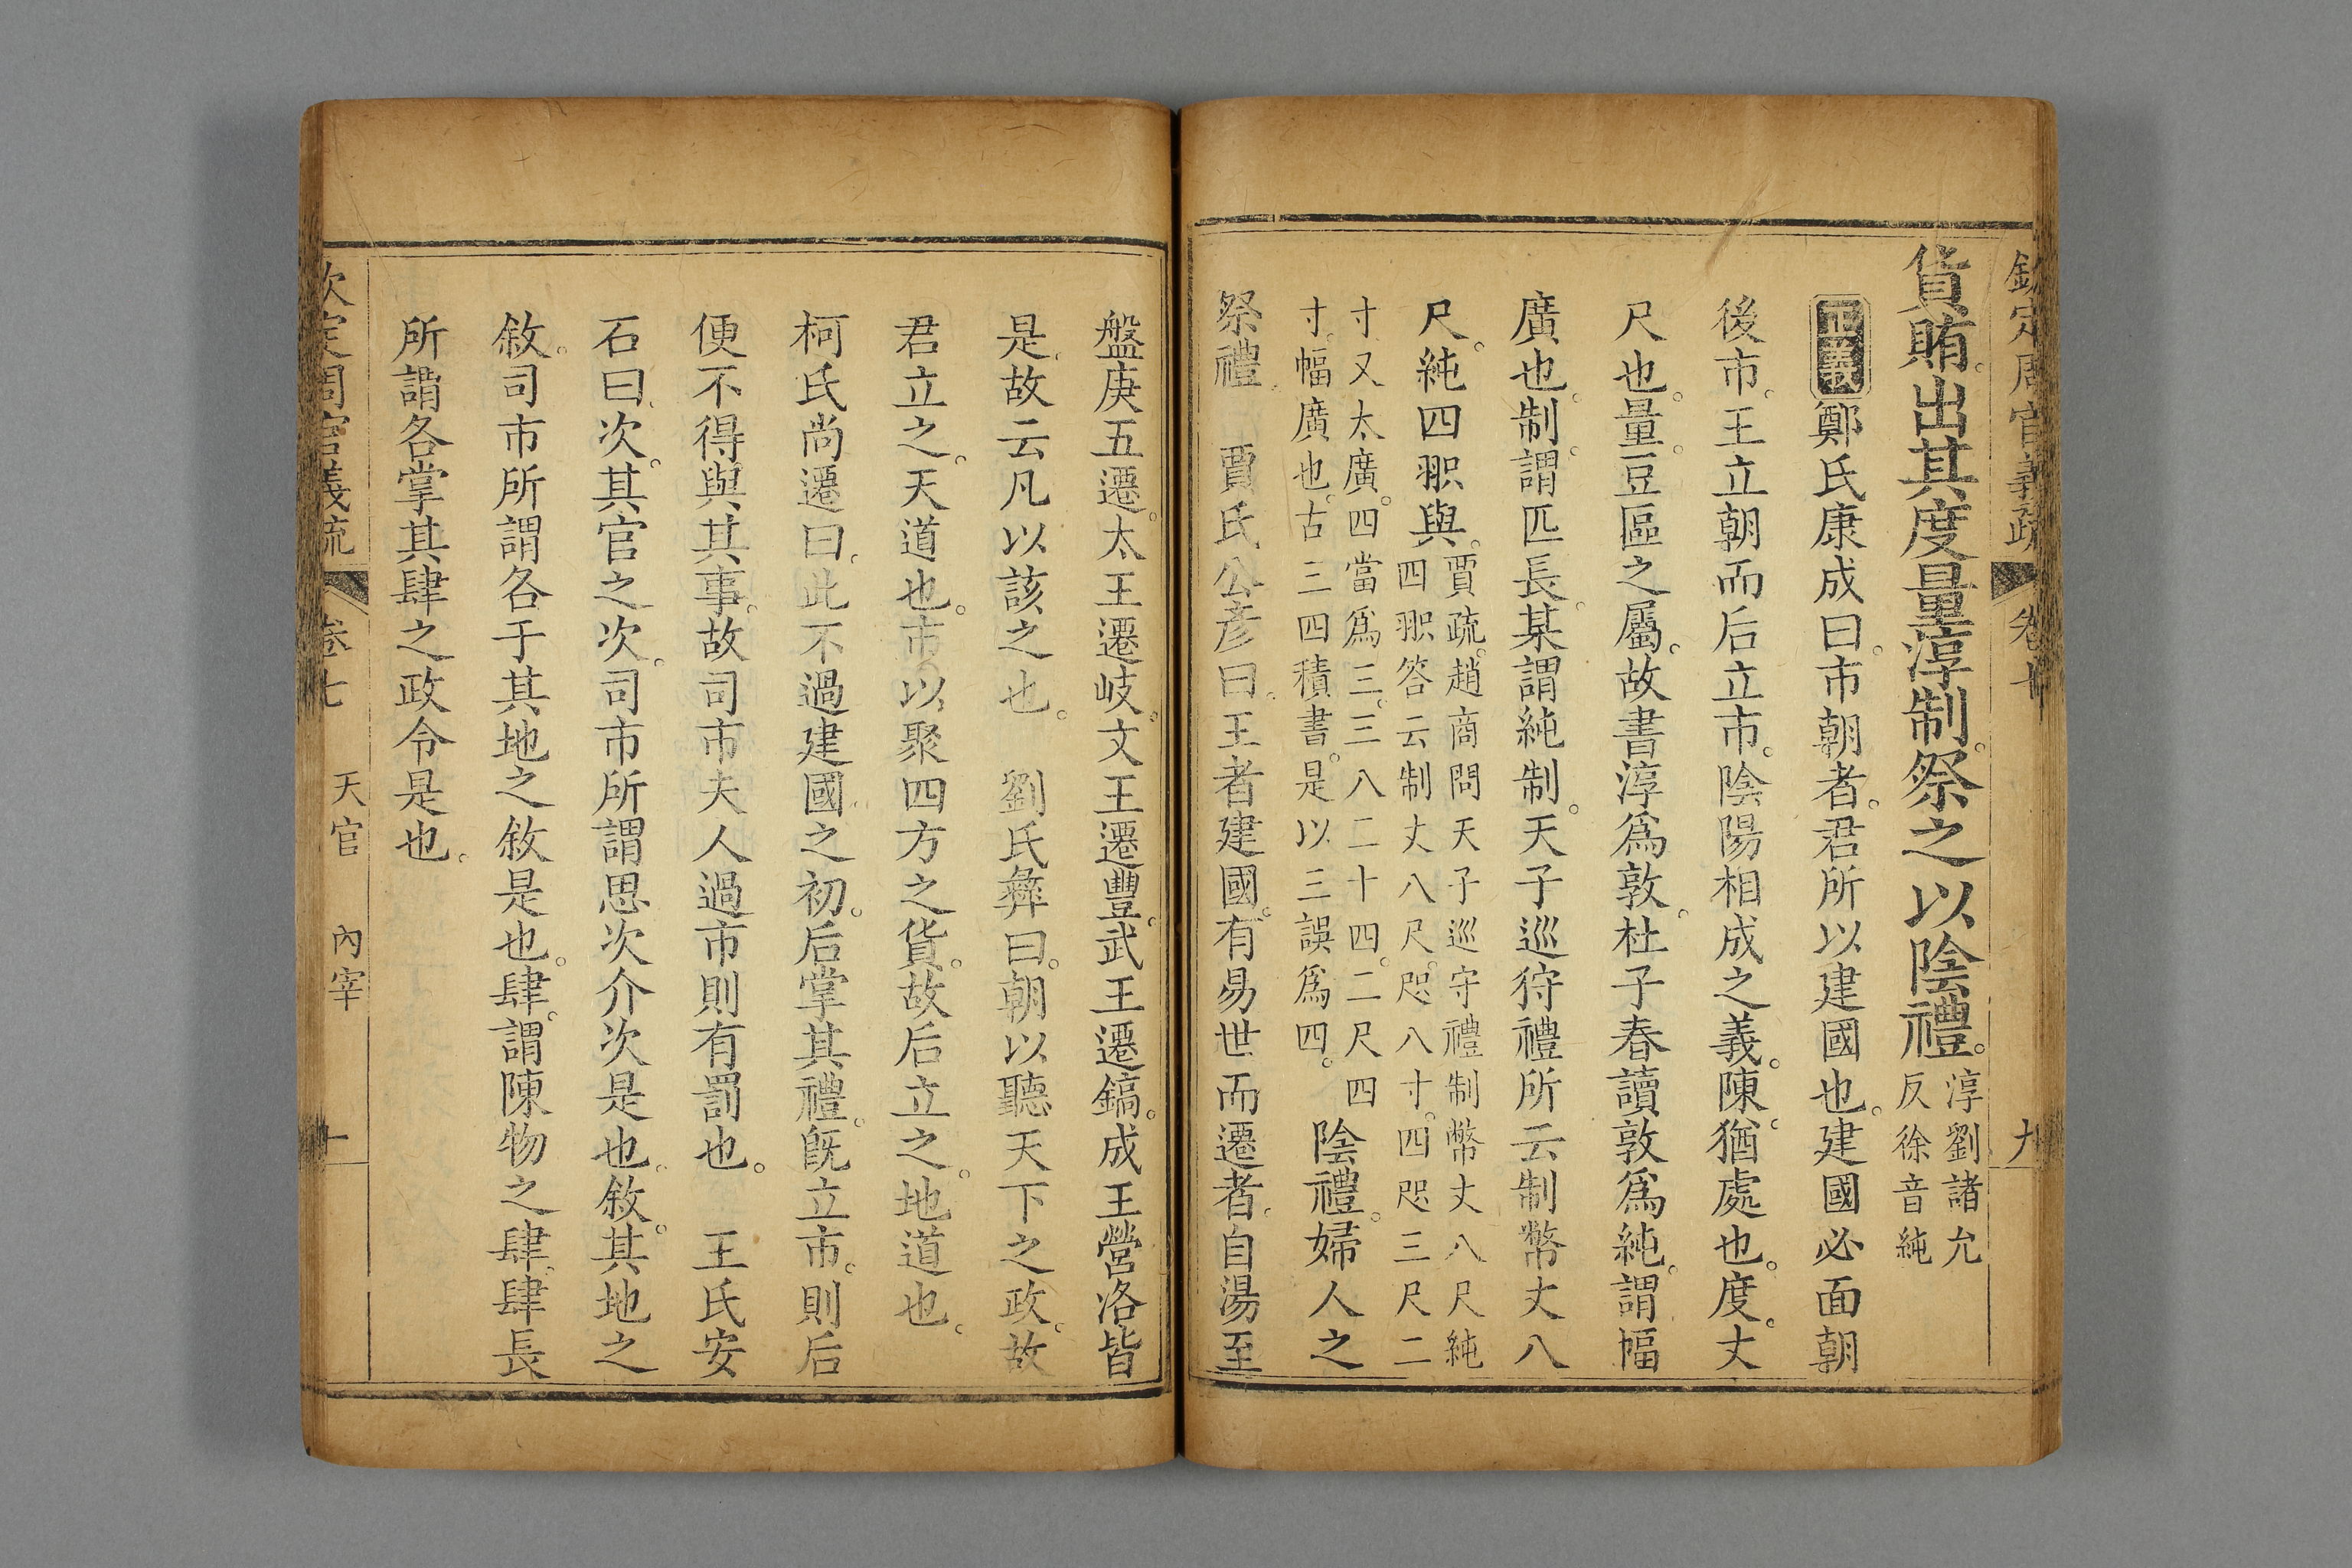 欽定周官義疏 卷七 九
貨賄。出其度量淳制。祭之以陰禮。淳劉諸允
反徐音純
正義鄭氏康成曰。市朝者。君所以建國也。建國必面朝
後市。王立朝而后立市。陰陽相成之義。陳。猶處也。度。丈
尺也。量。豆區之屬。故書淳爲敦。杜子春讀敦爲純。謂幅
廣也。制。謂匹長。某謂純制。天子巡狩禮所云制幣丈八
尺。純四㕞與。賈疏。趙商問天子巡守禮制幣丈八尺純
四㕞答云制丈八尺。咫八寸。四咫三尺二
寸又太廣。四當爲三。三八二十四。二尺四
寸。幅廣也。古三四積書。是以三誤爲四。陰禮。婦人之
祭禮。 賈氏公彥曰。王者建國。有易世而遷者。自湯至
盤庚五遷。太王遷岐。文王遷豐。武王遷鎬。成王營洛皆
是。故云凡以該之也。 劉氏彝曰。朝以聽天下之政。故
君立之。天道也。市以聚四方之貨。故后立之。地道也。
柯氏尚遷曰。此不過建國之初。后掌其禮。旣立市。則后
便不得與其事。故司市夫人過市則有罰也。 王氏安
石曰。次。其官之次。司市所謂思次介次是也。敘。其地之
敘。司市所謂各于其地之敘是也。肆。謂陳物之肆。肆長
所謂各掌其肆之政令是也。
欽定周官義疏 卷七 天官 內宰